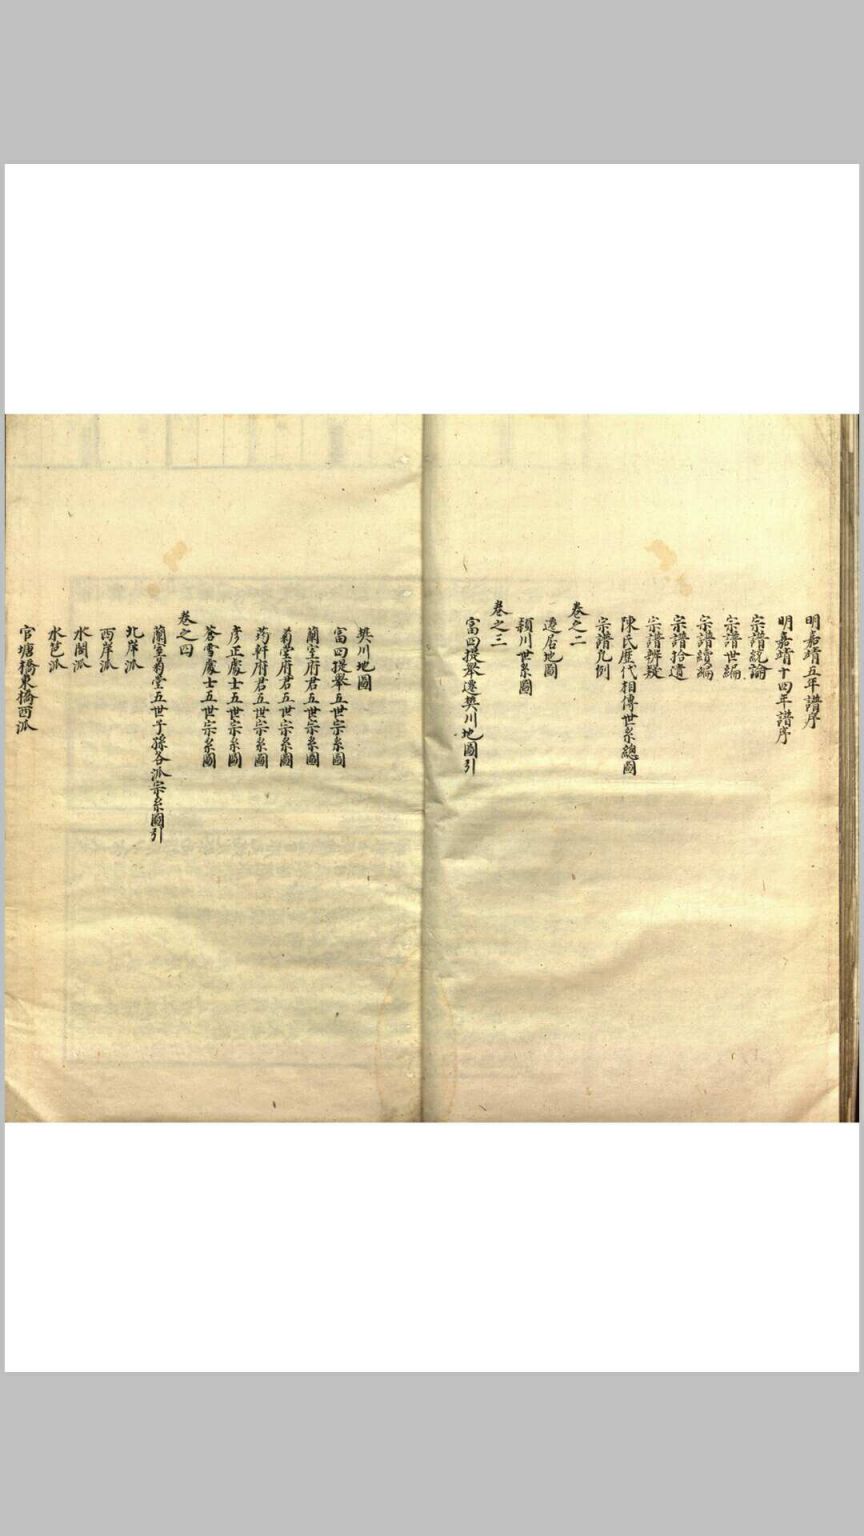 明嘉靖五年譜序
明嘉靖十四年譜序
宗譜統論
宗譜世編
宗譜續編
宗譜拾遺
宗譜辨疑
陳氏歷代相傳世系總圖
宗譜凡例
卷之二
遷居地圖
潁川世系圖
卷之三
富四提舉遷樊川地圖引
樊川地圖
富四提舉五世宗系圖
蘭室府君五世宗系圖
菊堂府君五世宗系圖
筠軒府君五世宗系圖
彥正處士五世宗系圖
苔雪處士五世宗系圖
卷之四
蘭室菊堂五世子孫各派宗系圖引
北岸派
西岸派
水閣派
水笆派
官塘橋東橋西派